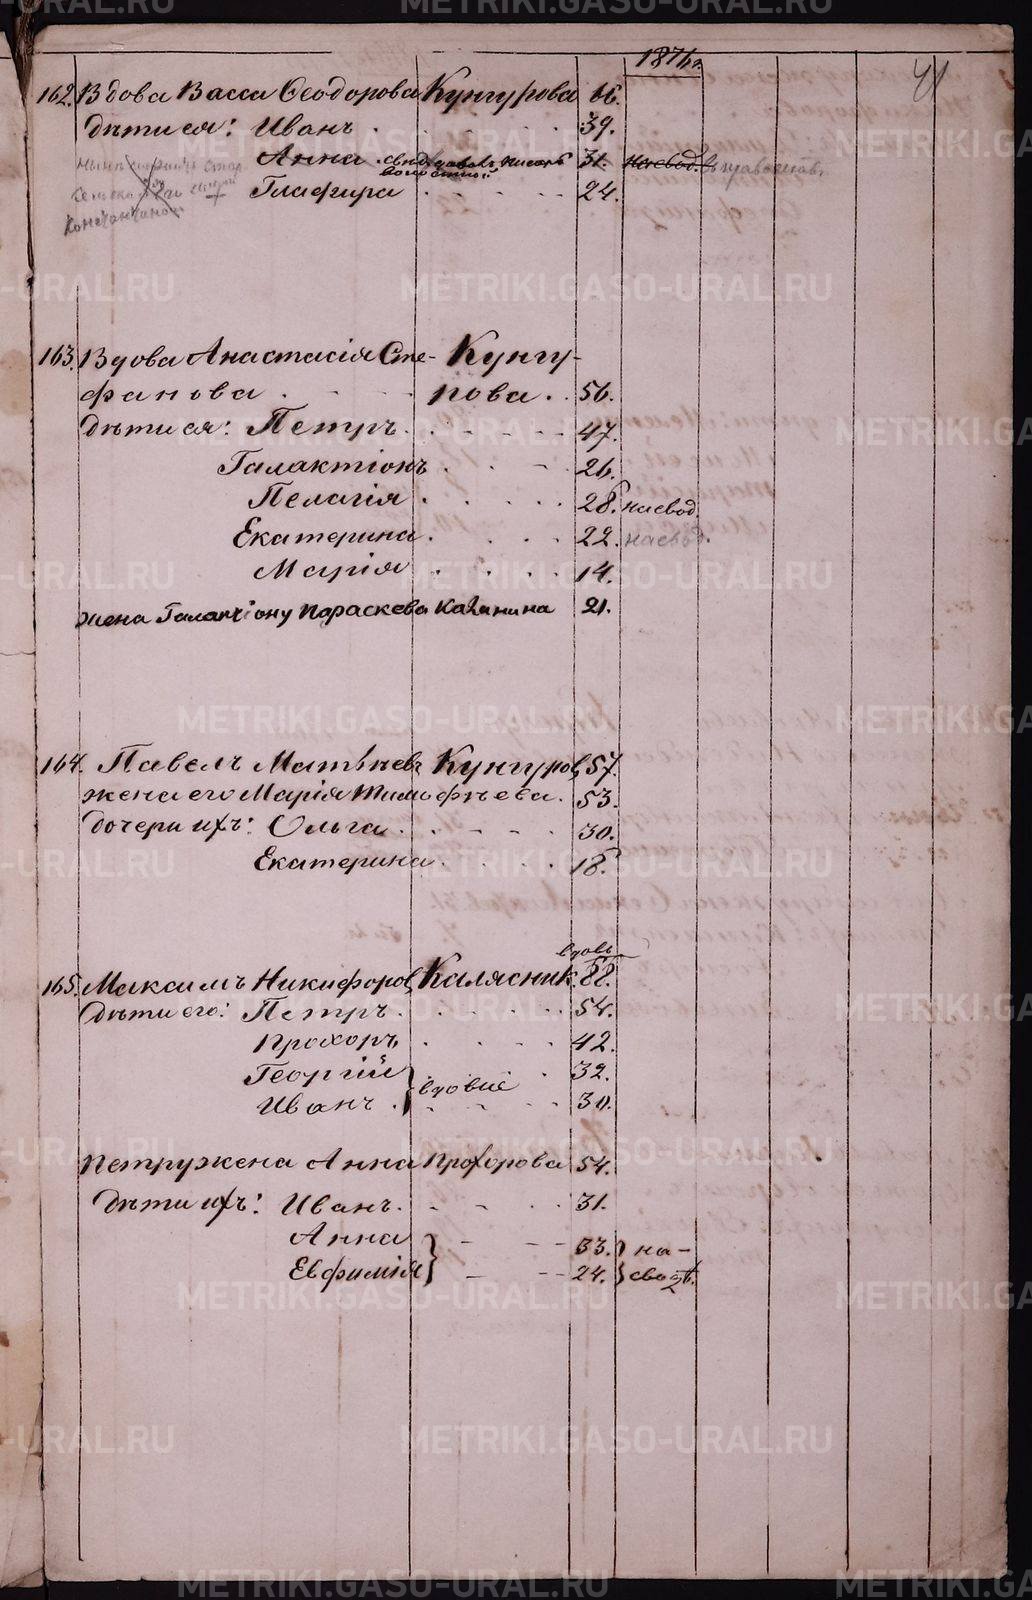 1876 г.
41
162. Вдова Васса Ѳеодорова Кунгурова 66.
дѣти ея: Иванъ 39.
Анна 31. насвод.
волостной
Глафира 24.
Константинов
163. Вдова Анастасія Сте- Кунгу-
фанова рова 56.
дѣти ея: Петръ 47.
Галактіонъ 26.
Пелагія 28. насвод.
Екатерина 22. насвод.
Марія 14.
жена Галактіону Параскева Калинина 21.
164. Павелъ Матѳѣевъ Кунгуровъ 57.
жена его Марія Тимоѳѣева 53.
дочери ихъ: Ольга 30.
Екатерина 18.
вдовъ
165. Максимъ Никифоров Калясник. 88.
дѣти его: Петръ 54.
Прохоръ 42.
Георгій 32.
Иванъ } вдовіе 30.
Петру жена Анна Прохорова 54.
дѣти ихъ: Иванъ 31.
Анна 33. } на-
Евфимія } 24. } сводѣ.
METRIKI.GASO-URAL.RU